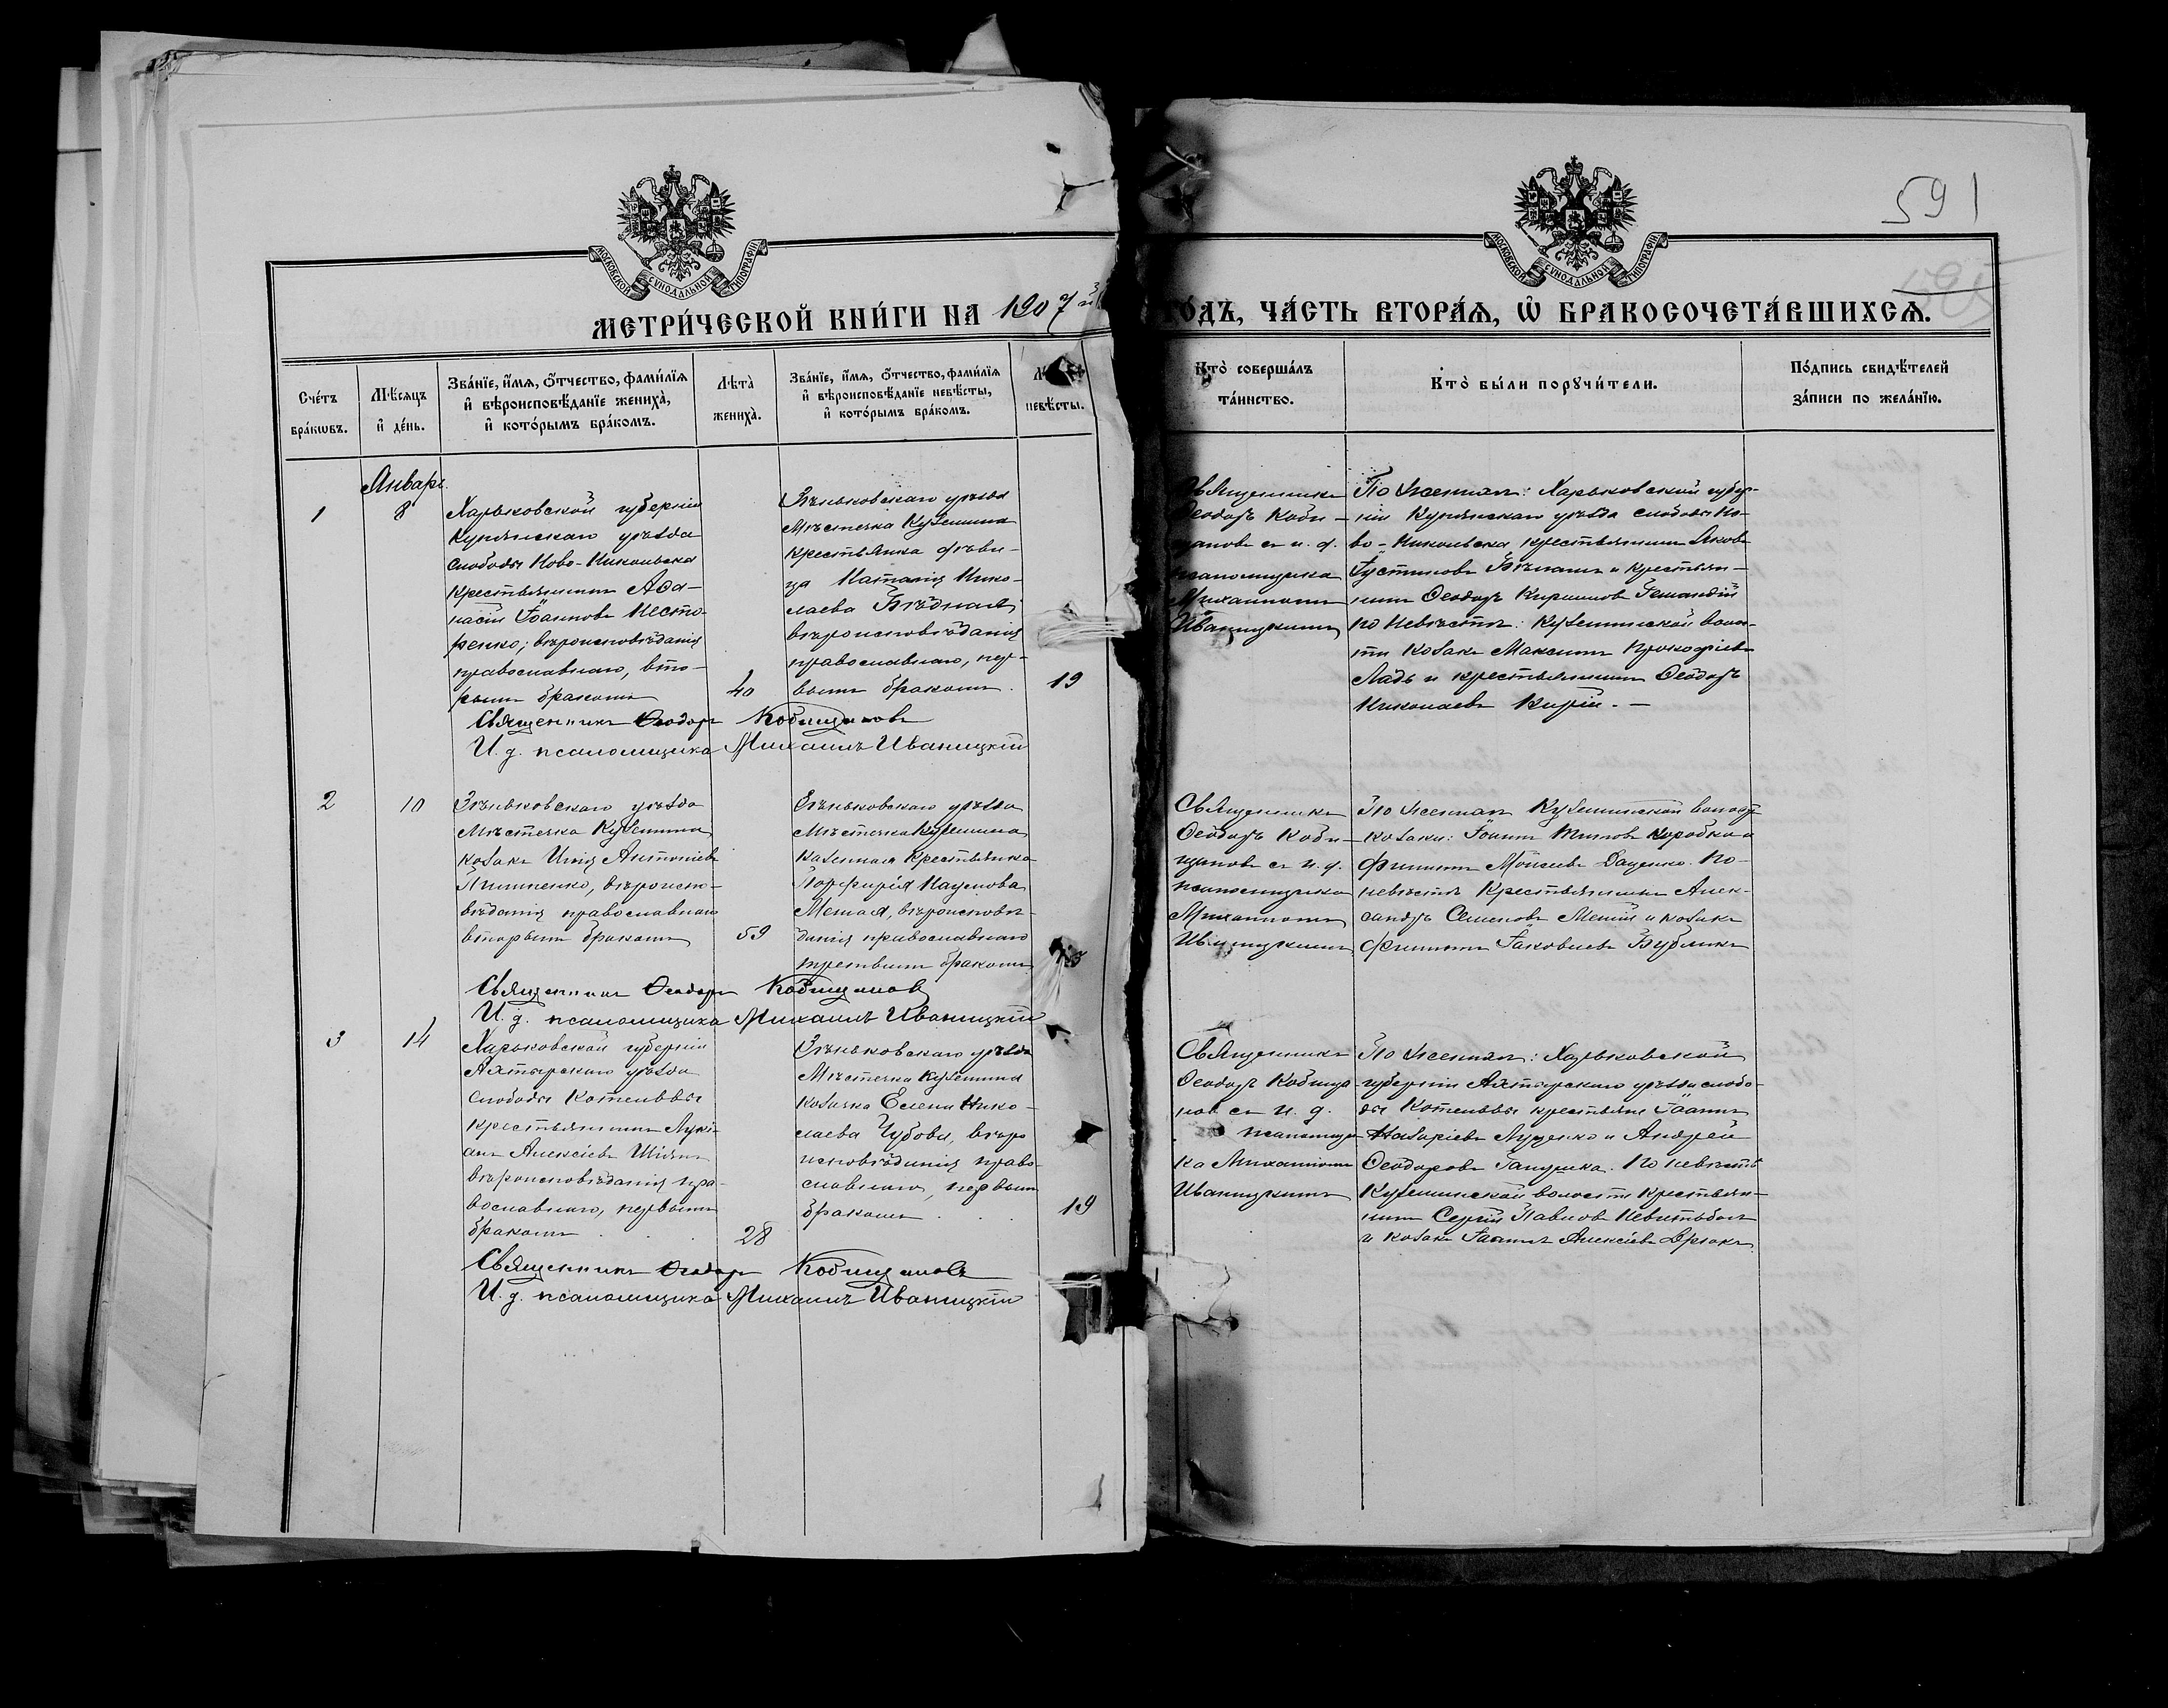 591
МОСКОВСКОЙ СѴНОДАЛЬНОЙ ТИПОГРАФІИ
МОСКОВСКОЙ СѴНОДАЛЬНОЙ ТИПОГРАФІИ
МЕТРИ́ЧЕСКОЙ КНИ́ГИ НА 1907 й
ГО́ДЪ, ЧА́СТЬ ВТОРА́Ѧ, Ѽ БРАКОСОЧЕТА́ВШИХСѦ.
Сче́тъ бра́кѡвъ.
Мѣ́сяцъ и҆ де́нь.
Зва́нїе, и҆́мѧ, ѻ҆́тчество, фами́лїѧ
и҆ вѣроисповѣ́данїе жениха̀,
и҆ кото́рымъ бра́комъ.
Лѣта̀ жениха̀.
Зва́нїе, и҆́мѧ, ѻ҆́тчество, фами́лїѧ
и҆ вѣроисповѣ́данїе невѣ́сты,
и҆ кото́рымъ бра́комъ.
невѣ́сты.
Кто̀ соверша́лъ
та́инство.
Кто̀ бы́ли порꙋчи́тели.
По́дпись свидѣ́телей
за́писи по жела́нїю.
Январь
1
8
Харьковской губерніи
Купянскаго уѣзда
слободы Ново-Никольска
крестьянинъ Аѳа-
насій Іоанновъ Несте-
ренко; вѣроисповѣданія
православнаго, вто-
рымъ бракомъ
40
Зѣньковскаго уѣзда
Мѣстечка Куземина
крестьянка дѣви-
ца Наталія Нико-
лаева Бѣдная
вѣроисповѣданія
православнаго, пер-
вымъ бракомъ.
19
Священникъ
Ѳеодоръ Коби-
щановъ съ и. д.
псаломщика
Михаиломъ
Иваницкимъ
По женихѣ: Харьковской губер-
ніи Купянскаго уѣзда слободы Но-
во-Никольска крестьянинъ Яковъ
Густиновъ и крестьян-
инъ Ѳеодоръ Кирилловъ
по невѣстѣ: Куземинской волос-
ти козакъ Максимъ Прокофіевъ
Ладъ и крестьянинъ Ѳеодоръ
Николаевъ Кирій. —
Священникъ Ѳеодоръ Кобищановъ
И. д. псаломщика Михаилъ Иваницкій
2
10
Зѣньковскаго уѣзда
Мѣстечка Куземина
козакъ Илія Антоніевъ
вѣроиспо-
вѣданія православнаго
вторымъ бракомъ
59
Зѣньковскаго уѣзда
Мѣстечка Куземина
казенная крестьянка
Порфирія Наумова
вѣроисповѣ-
данія православнаго
третьимъ бракомъ
Священникъ
Ѳеодоръ Коби-
щановъ съ и. д.
псаломщика
Михаиломъ
Иваницкимъ
По женихѣ Куземинской волости
козаки: Іоаннъ Титовъ Коробка и
Филиппъ Моисеевъ Даценко. По
невѣстѣ крестьянинъ Алек-
сандръ Семеновъ и козакъ
Филиппъ Іаковлевъ Бубликъ
Священникъ Ѳеодоръ Кобищановъ
И. д. псаломщика Михаилъ Иваницкій
3
14
Харьковской губерніи
Ахтырскаго уѣзда
слободы Котельвы
крестьянинъ Лукі-
анъ Алексіевъ
вѣроисповѣданія пра-
вославнаго, первымъ
бракомъ
28
Зѣньковскаго уѣзда
Мѣстечка Куземина
козачка Елена Нико-
лаева Чубова, вѣро
исповѣданія право-
славнаго, первымъ
бракомъ
19
Священникъ
Ѳеодоръ Кобища-
новъ съ и. д.
псаломщи-
ка Михаиломъ
Иваницкимъ
По женихѣ: Харьковской
губерніи Ахтырскаго уѣзда слобо-
ды Котельвы крестьяне Іоаннъ
Назаріевъ Луценко и Андрей
Ѳеодоровъ. По невѣстѣ
Куземинской волости крестьян-
инъ Сергій Павловъ
и козакъ Іоаннъ Алексіевъ Дрюкъ
Священникъ Ѳеодоръ Кобищановъ
И. д. псаломщика Михаилъ Иваницкій